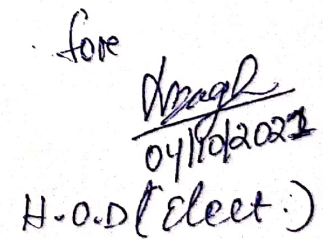 fore
04/10/2021
H.O.D (Elect.)